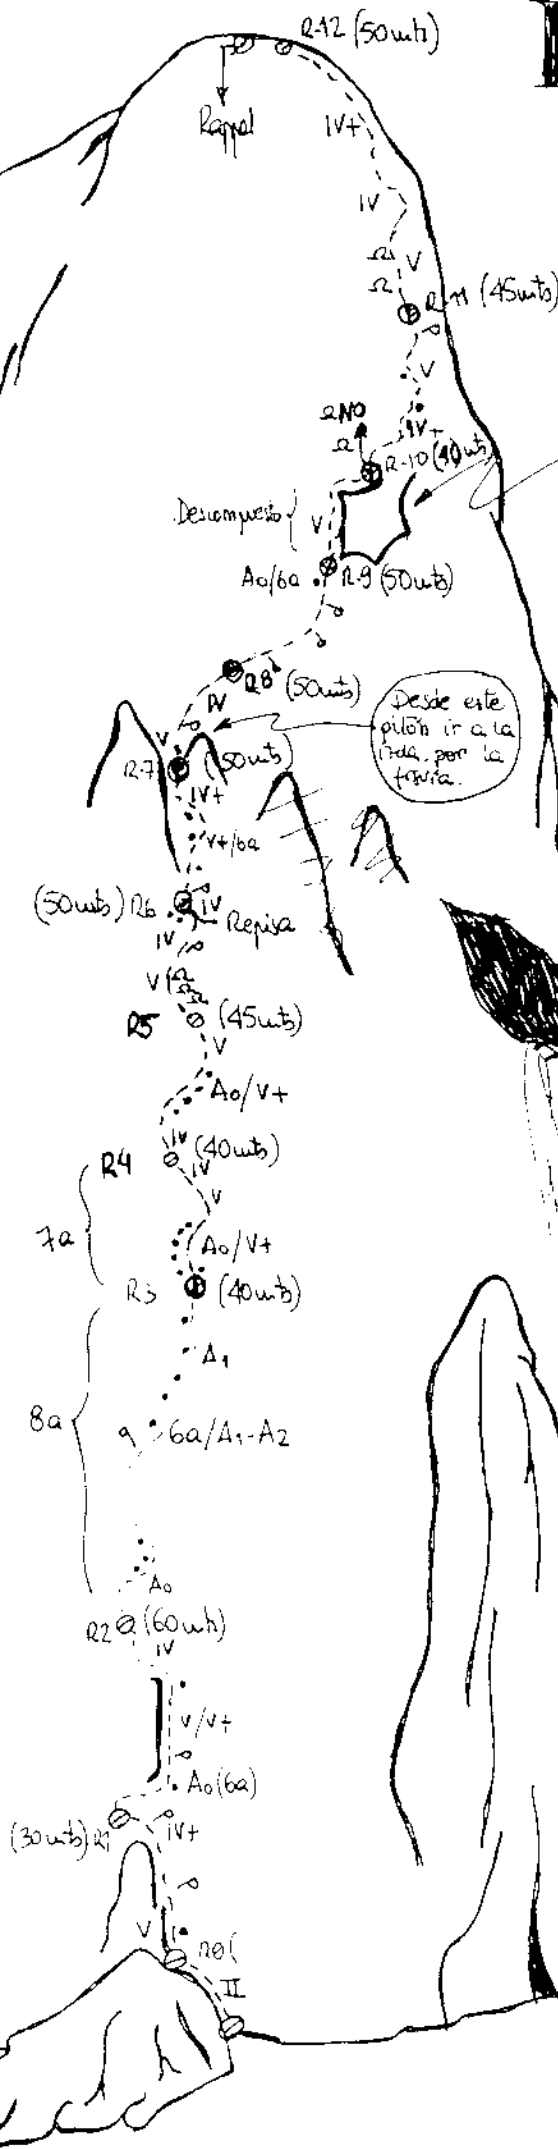 R-12 (50mts)
Rappel
IV+
IV
V
R-11 (45mts)
V
NO
IV+
R-10 (40mts)
Descompuesto
V
Ao/6a
R-9 (50mts)
R8 (50mts)
IV
Desde este
pitón ir a la
izda. por la
fisura.
V
R-7 (50mts)
IV+
V+/6a
(50mts) R6
IV
Repisa
IV
V
R5 (45mts)
V
Ao/V+
IV
R4 (40mts)
IV
V
7a
Ao/V+
R3 (40mts)
A1
8a
6a/A1-A2
Ao
R2 (60mts)
IV
V/V+
Ao(6a)
(30mts) R1
IV+
V
R0
II